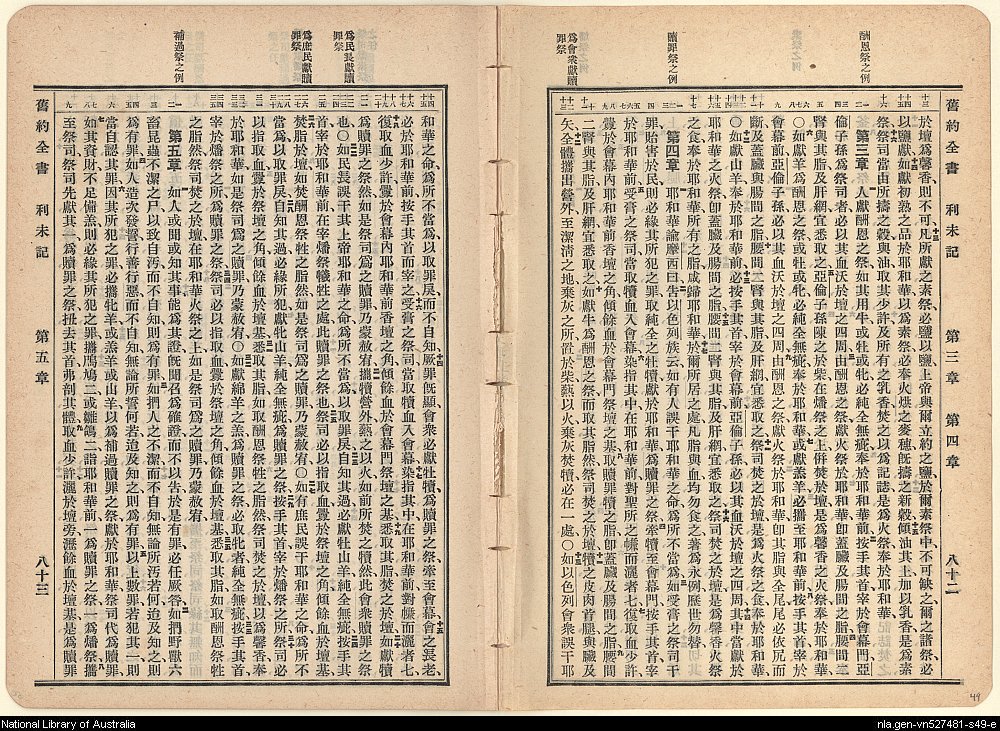 酬恩祭之例
贖罪祭之例
為會衆獻贖罪祭
舊約全書 利未記 第三章 第四章 八十二
於壇為馨香則不可凡所獻之素祭必鹽以鹽上帝與爾立約之鹽於爾素祭中不可缺之爾之諸祭必
以鹽獻如獻初熟之品於耶和華以為素祭必奉火㷊之麥穗既擣之新穀傾油其上加以乳香是為素
祭祭司當由所擣之穀與油取其少許及所有之乳香焚之以為記誌是為火祭奉於耶和華
第三章 人獻酬恩之祭如其用牛或牡或牝必純全無疵奉於耶和華前按手其首宰於會幕門亞
倫子孫為祭司者必以其血沃於壇之四周由酬恩之祭獻火祭於耶和華卽蓋臟及腸間之脂腰間二
腎與其脂及肝網宜悉取之亞倫子孫陳之於柴在燔祭之上倂焚於壇是為馨香之火祭奉於耶和華
〇如獻羊為酬恩之祭或牡或牝必純全無疵奉於耶和華或獻羔羊必攜至耶和華前按手其首宰於
會幕前亞倫子孫必以其血沃於壇之四周由酬恩之祭獻火祭於耶和華卽其脂與全尾尾必依尻而
斷及蓋臟與腸間之脂腰間二腎與其脂及肝網宜悉取之祭司焚之於壇是為火祭之食奉於耶和華
〇如獻山羊奉於耶和華前必按手其首宰於會幕前亞倫子孫必以其血沃於壇之四周其中當獻於
耶和華之火祭卽蓋臟及腸間之脂腰間二腎與其脂及肝網宜悉取之祭司焚之於壇是為馨香火祭
之食奉於耶和華所有之脂咸歸耶和華於爾所居之處凡脂與血均勿食之著為永例歷世勿替
第四章 耶和華諭摩西曰告以色列族云如有人誤干耶和華之命為所不當為如受膏之祭司干
罪貽害於民則必緣其所犯之罪取純全之牡犢獻於耶和華為贖罪之祭牽犢至會幕門按手其首宰
於耶和華前受膏之祭司當取犢血入會幕染指其中在耶和華前對聖所之㡘而灑者七復取血少許
釁於會幕內耶和華前香壇之角傾餘血於會幕門燔祭壇之基取贖罪犢之脂卽蓋臟及腸間之脂腰間
二腎與其脂及肝網宜悉取之如獻牛為酬恩之祭而取其脂然祭司焚之於燔祭壇犢之皮肉首腿與臟及
矢全體攜出營外至潔淸之地棄灰之所置於柴爇以火棄灰焚犢必在一處〇如以色列會衆誤干耶
為民長獻贖罪祭
為庶民獻贖罪祭
補過祭之例
和華之命為所不當為以取罪戾而不自知厥罪旣顯會衆必獻牡犢為贖罪之祭牽至會幕會之長老
必於耶和華前按手其首而宰之受膏之祭司當取犢血入會幕染指其中在耶和華前對㡘而灑者七
復取血少許釁於會幕內耶和華前壇之角傾餘血於會幕門燔祭壇之基悉取其脂焚之於壇如獻犢
為贖罪之祭然如是祭司為之贖罪乃蒙赦宥攜犢營外爇之以火如前所焚之犢然此會衆贖罪之祭
也〇如民長誤干其上帝耶和華之命為所不當為以取罪戾自知其過必獻牡山羊純全無疵按手其
首宰於耶和華前在宰燔祭犧牲之處此贖罪之祭也祭司必以指取血釁於燔祭壇之角傾餘血於壇基
焚脂於壇如焚酬恩祭牲之脂然如是祭司為之贖罪乃蒙赦宥〇如有庶民誤干耶和華之命為所不
當為以取罪戾自知其過必緣所犯獻牝山羊純全無疵為贖罪之祭按手其首宰於燔祭之所祭司必
以指取血釁於祭壇之角傾餘血於壇基悉取其脂如取酬恩祭牲之脂然祭司焚之於壇以為馨香奉
於耶和華如是祭司為之贖罪乃蒙赦宥〇如獻綿羊之羔為贖罪之祭必取牝者純全無疵按手其首
宰於燔祭之所為贖罪之祭祭司必以指取血釁於祭壇之角傾餘血於壇基悉取其脂如取酬恩祭牲
之脂然祭司焚之於壇在耶和華火祭之上如是祭司為之贖罪乃蒙赦宥
第五章 如人或聞或知其事能為其證旣聞召為確證而不以告於是有罪必任厥咎如捫野獸六
畜昆蟲不潔之尸以致自汚而不自知則為有罪如捫人之不潔而不自知無論所汚若何迨及知之則
為有罪如人造次發誓行善行惡而不自知無論所誓何若迨及知之則為有罪以上數罪若犯其一則
當自認其罪因其所犯之罪必攜牝羊或羔羊或山羊以為補過贖罪之祭獻於耶和華祭司代為贖罪
如其資財不足備羔則必緣其所犯之罪攜鳲鳩二或雛鴿二詣耶和華前一為贖罪之祭一為燔祭攜
至祭司祭司先獻其一為贖罪之祭扭去其首弗剖其體取血少許灑於壇旁瀝餘血於壇基是為贖罪
舊約全書 利未記 第五章 八十三
49
National Library of Australia
nla.gen-vn527481-s49-e